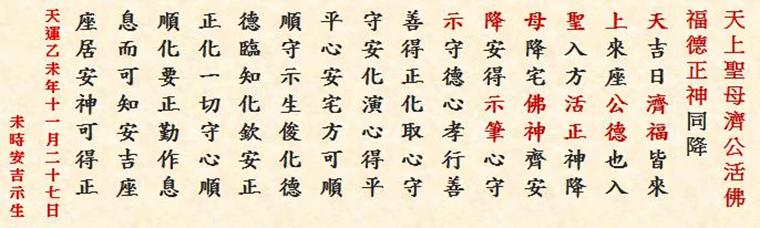 天上聖母濟公活佛
福德正神同降
天吉日濟福皆來
上來座公德也入
聖入方活正神降
母降宅佛神齊安
降安得示筆心守
示守德心孝行善
善得正化取心守
守安化演心得平
平心安宅方可順
順守示生俊化德
德臨知化欽安正
正化一切守心順
順化要正勤作息
息而可知安吉座
座居安神可得正
天運乙未年十一月二十七日
未時安吉示生